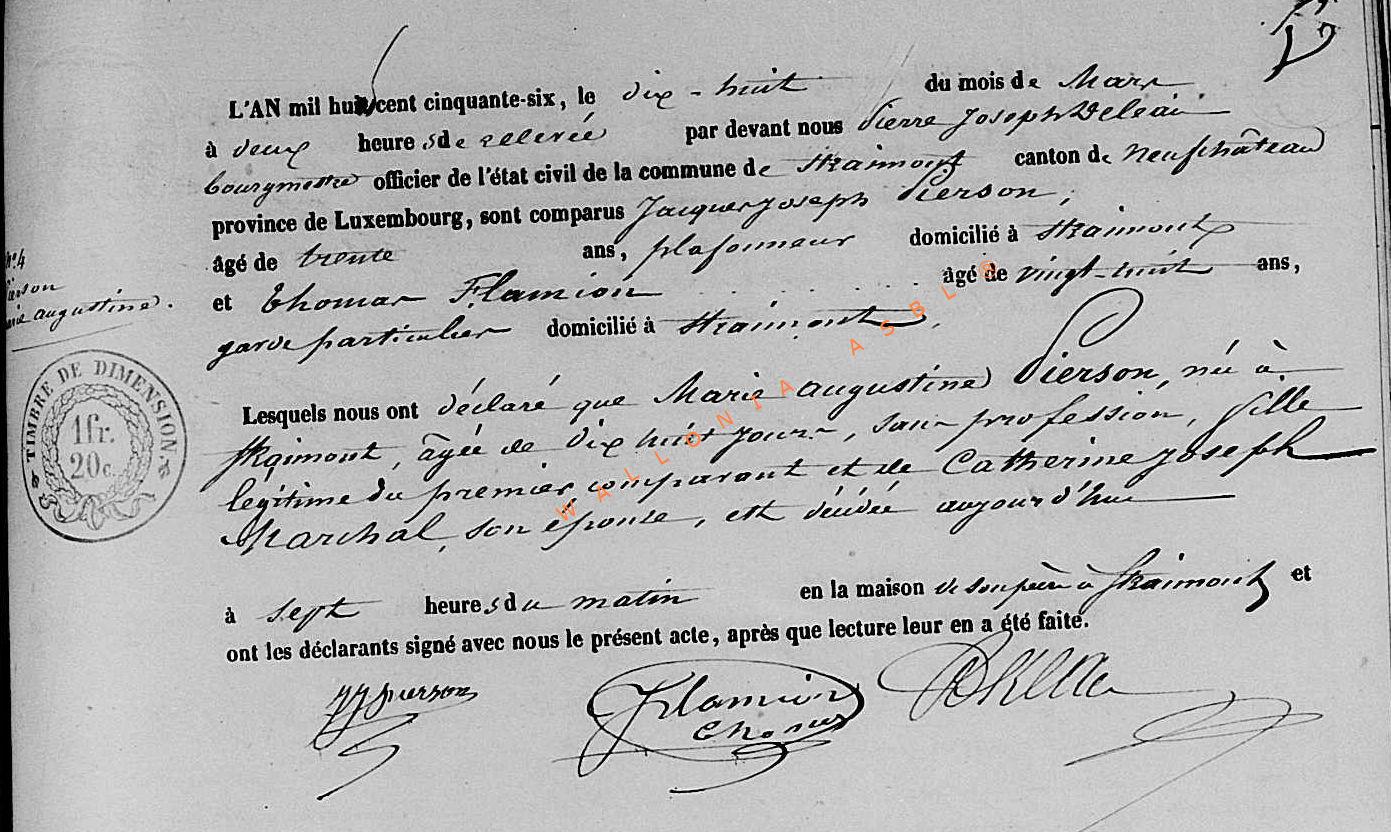 L'AN mil huit cent cinquante-six, le dix-huit du mois de Mars
à deux heures de relevée par devant nous Pierre Joseph Deleau
bourgmestre officier de l'état civil de la commune de Straimont canton de Neufchâteau
province de Luxembourg, sont comparus Jacques Joseph Pierson,
âgé de trente ans, plafonneur domicilié à Straimont
et Thomas Flamion âgé de vingt-huit ans,
garde particulier domicilié à Straimont,
Lesquels nous ont déclaré que Marie Augustine Pierson, née à
Straimont, âgée de dix huit jours, sans profession, fille
légitime du premier comparant et de Catherine Joseph
Marchal, son épouse, est décédée aujourd'hui
à sept heures du matin en la maison de son père à Straimont et
ont les déclarants signé avec nous le présent acte, après que lecture leur en a été faite.
JJ Pierson
Flamion
Thomas
N° 4
Pierson
Marie Augustine.
TIMBRE DE DIMENSION
1fr.
20c.
WALLONIA ASBL ©